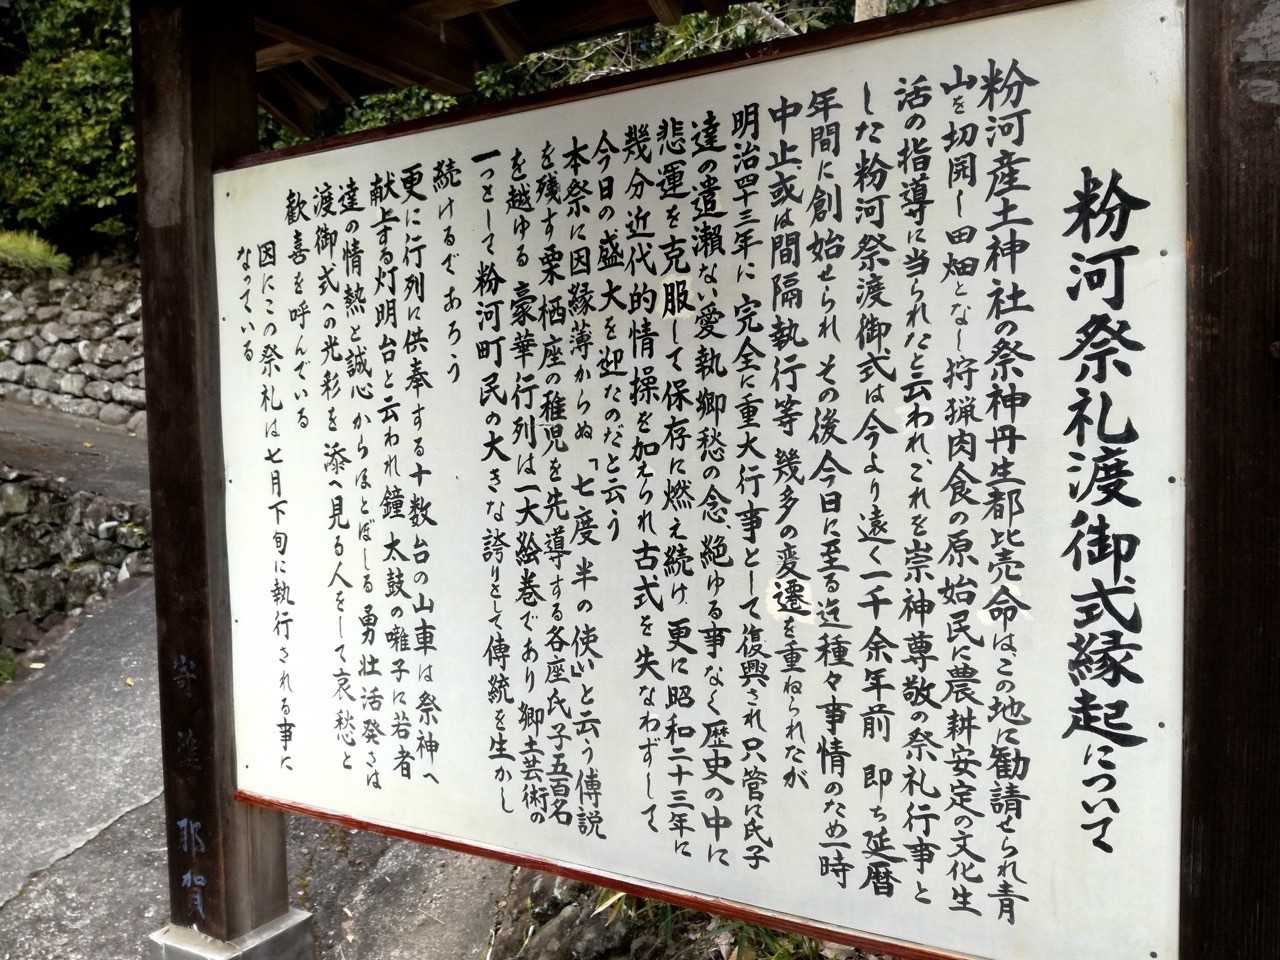 粉河祭礼渡御式縁起について
粉河産土神社の祭神丹生都比売命は、この地に勧請せられ青
山を切開し田畑となし狩猟肉食の原始民に農耕安定の文化生
活の指導に当られたと云われ、これを崇神尊敬の祭礼行事と
した粉河祭渡御式は今より遠く一千余年前 即ち延暦
年間に創始せられ その後今日に至る迄種々事情のため一時
中止或は間隔執行等 幾多の変遷を重ねられたが
明治四十三年に 完全に重大行事として復興され只管に氏子
達の遣瀬ない愛執郷愁の念絶ゆる事なく歴史の中に
悲運を克服して保存に燃え続け 更に昭和二十三年に
幾分近代的情操を加えられ古式を失なわずして
今日の盛大を迎たのだと云う
本祭に因縁薄からぬ「七度半の使い」と云う傅説
を残す栗栖座の稚児を先導する各座氏子五百名
を越ゆる豪華行列は一大絵巻であり郷土芸術の
一つとして粉河町民の大きな誇りとして傅統を生かし
続けるであろう
更に行列に供奉する十数台の山車は祭神へ
献上する灯明台と云われ鐘太鼓の囃子に若者
達の情熱と誠心からほとばしる勇壮活発さは
渡御式への光彩を添へ見る人をして哀愁と
歓喜を呼んでいる
因にこの祭礼は七月下旬に執行される事に
なっている
那賀